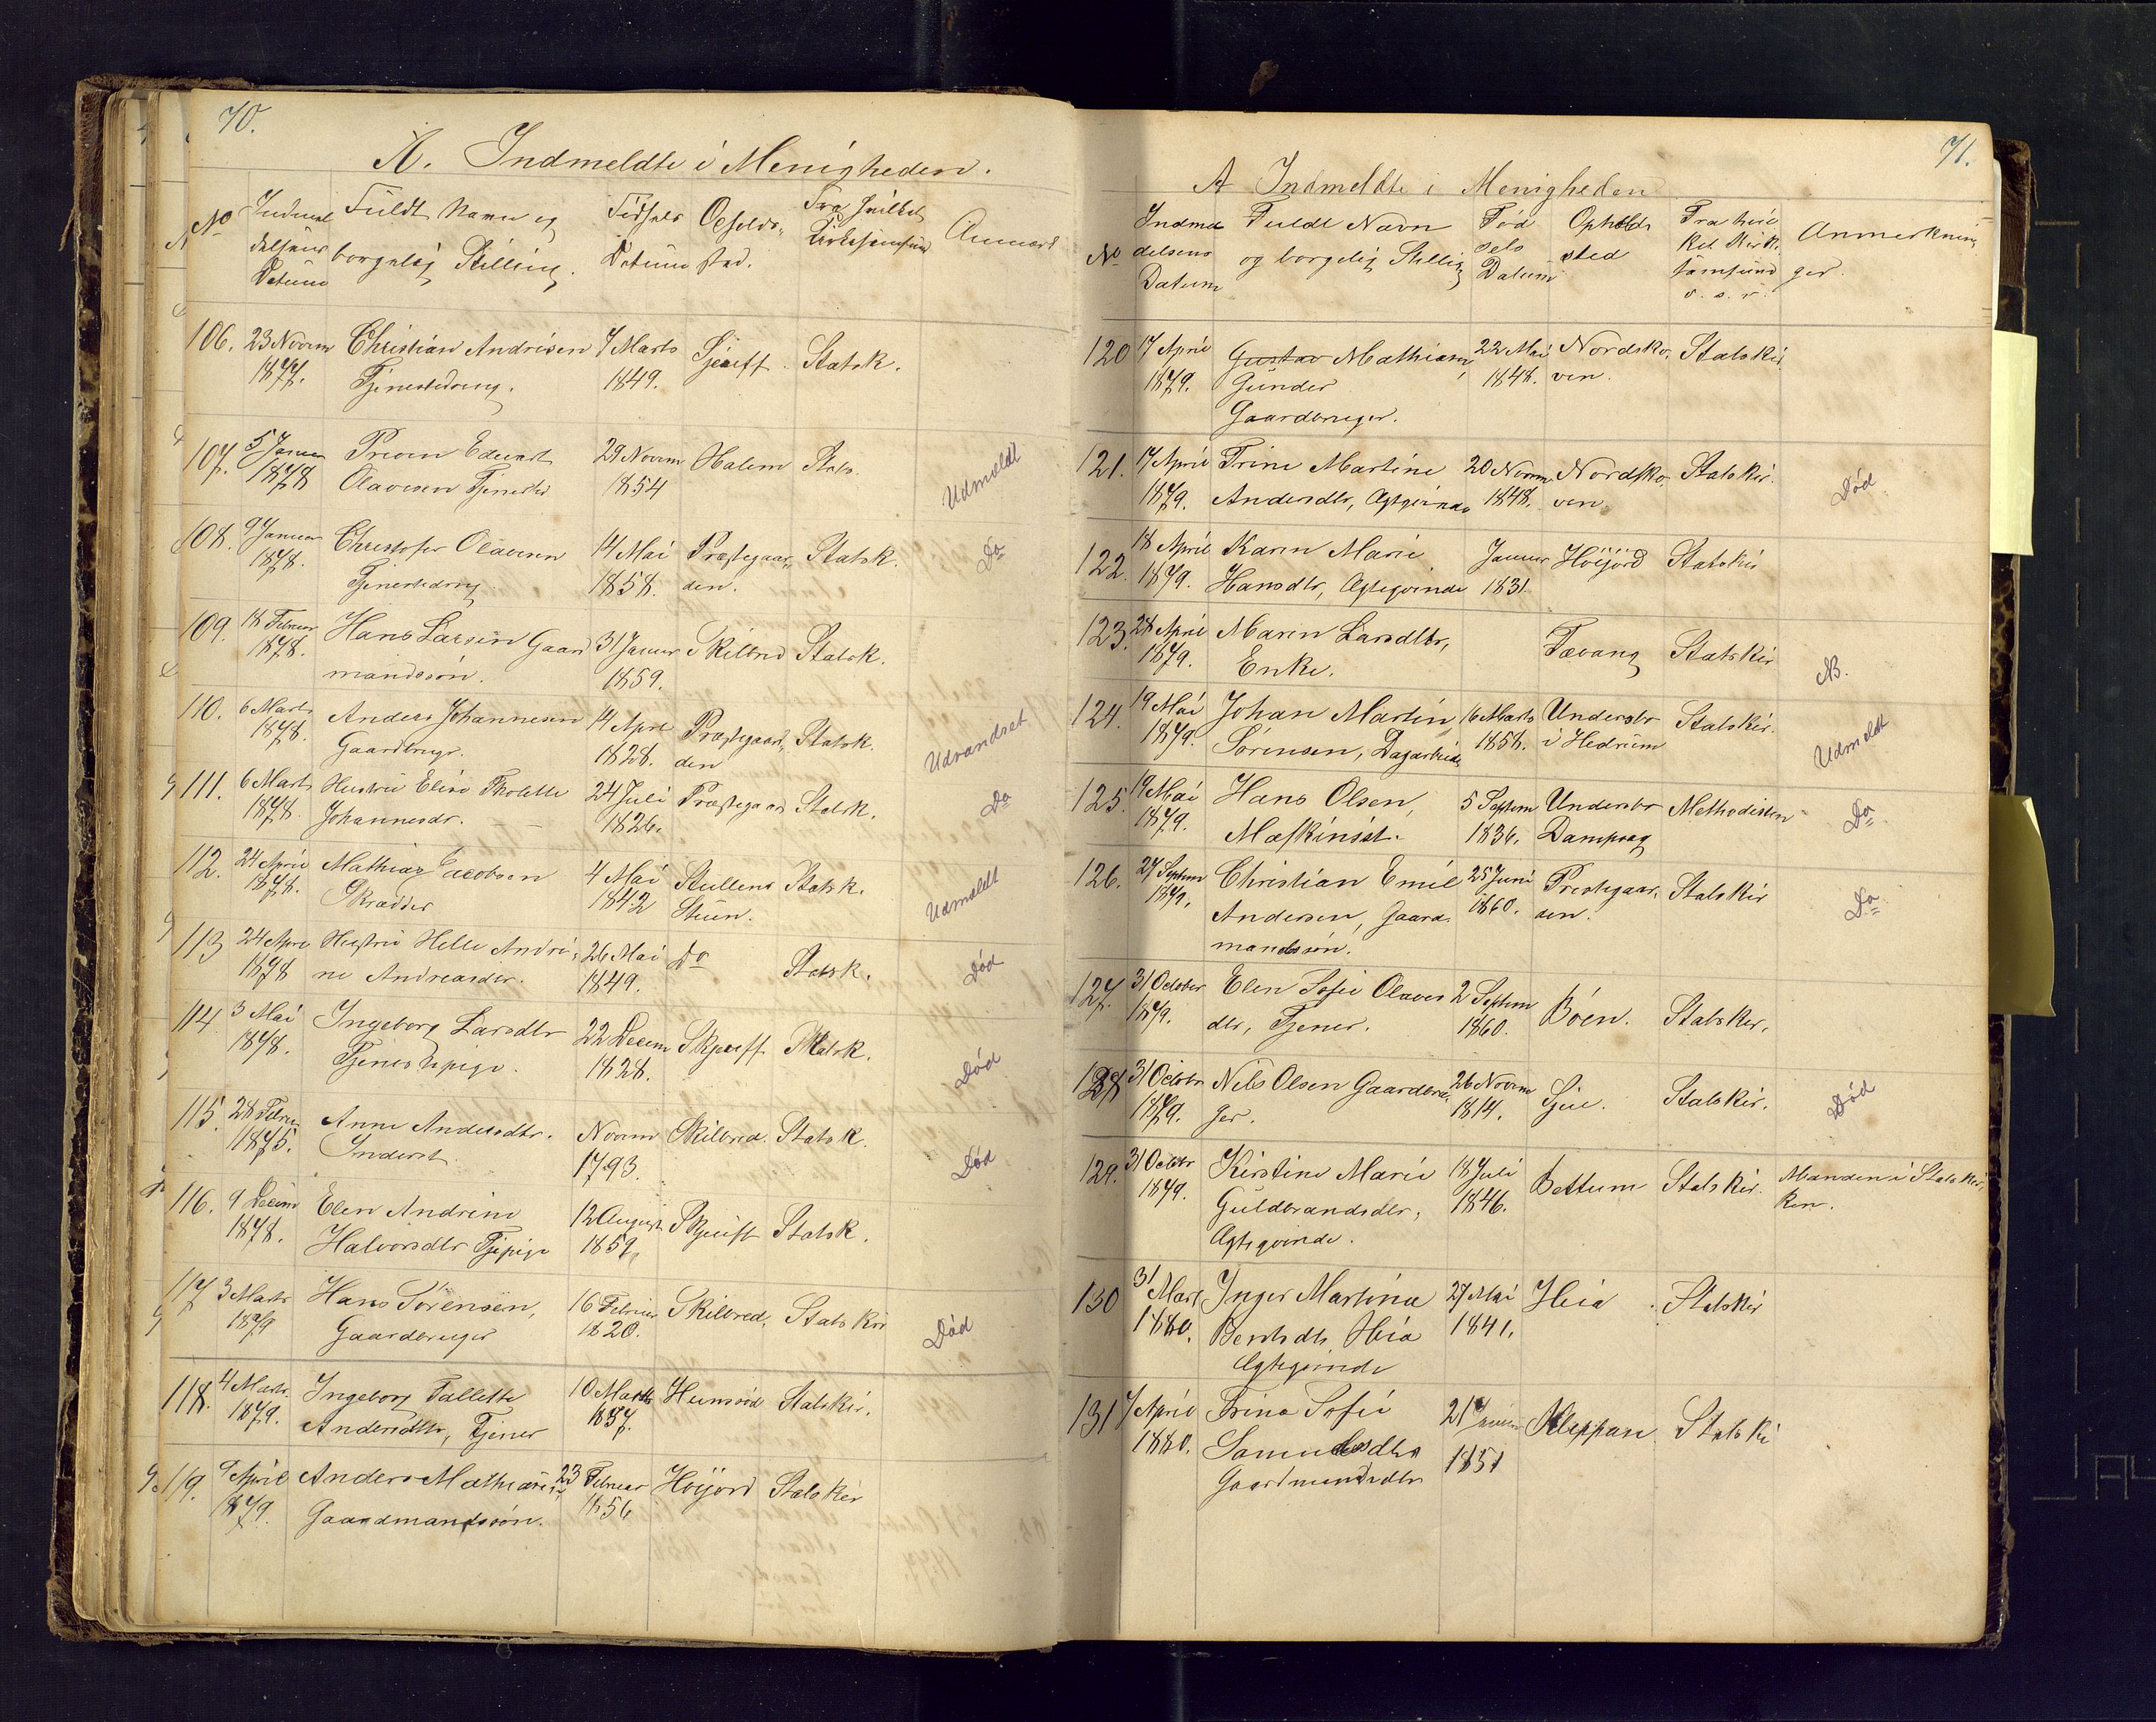 70.
A. Indmeldte i Menigheden.
No Indmel Fuldt Navn og Fødsels Opholds- Fra hvilket Anmærk
delsens borgerlig Stilling. Datum sted. Kirkesamfund
Datum
106. 23 Novem Christian Andrisen 7 Marts Sjeust. Statsk.
1877. Tjenestedreng. 1849.
107. 5 Januar Preben Edvart 29 Novem Holem Stats. Udmeldt
1878 Olavesen Tjenestedr 1854
108. 9 Januar Christofer Olavesen 14 Mai Præstegaar, Statsk. Do
1878. Tjenestedreng 1858. den.
109. 18 Februar Hans Larsen Gaard 31 Januar Skilbred Statsk.
1878. mandssøn. 1859.
110. 6 Marts Anders Johannesen 14 April Præstegaar, Statsk. Udvandret
1878. Gaardbruger. 1828. den
111. 6 Marts Hustru Elise Tholette 24 Juli Præstegaar Statsk. Do
1878. Johannesdr. 1826.
112. 24 April Mathias Jacobsen 4 Mai Stullens Statsk. Udmeldt
1878. Skrædder 1842 Stuen.
113 24 April Hustru Helle Andri, 26 Mai Do Statsk. Død
1878 ne Andreasdr. 1849.
114. 3 Mai Ingeborg Larsdtr 22 Decem Skjeust Statsk. Død
1878. Tjenestepige. 1828.
115. 28 Februar Anne Andersdtr. Novem Skilbred Statsk. Død
1875. Inderst 1793.
116. 9 Decem Elen Andrine 12 August Skjeust Statsk.
1878. Halvorsdtr Tjpige 1859.
117 3 Marts Hans Sörensen, 16 Februar Skilbred. Stats kir Død
1879 Gaardbruger 1820.
118. 4 Marts. Ingeborg Tallette 10 Marts Hemsød Statskir.
1879. Andersdtr, Tjener 1857.
119. 9 April Anders Mathiasen 23 Februar Høijord Statskir
1879. Gaardmandssøn. 1856
71.
A Indmeldte i Menigheden
No Indmel Fuldt Navn Fød Opholds Fra hvil Anmerknin
delsens og borgelig Stilling sels sted ket Kirke ger.
Datum Datum samfund
o. s. v.
120 17 April Gustav Mathiasen 22 Mai Nordsko, Statskir.
1879. Gunder 1848. ven.
Gaardbruger.
121. 17 April Trine Martine 20 Novem Nordsko, Statskir. Død
1879. Andersdtr, Ægtqvinde 1848. ven.
122. 18 April Karen Marie Januar Høijord Statskir
1879. Hansdtr, Ægteqvinde 1831.
123. 28 April Maren Larsdtr, Tævang Statskir NB.
1879. Enke.
124. 19 Mai Johan Martin 16 Marts Undersbo Statskir. Udmeldt
1879. Sörensen, Dagarbeid 1858. i Hedrum
125. 19 Mai Hans Olsen, 5 Septem Undersbo Methodisten Do
1879. Maskinist. 1836. Dampsag
126. 27 Septem Christian Emil 25 Juni Prestegaar, Statskir Do
1879. Andersen, Gaard- 1860. den.
mandssøn.
127. 31 October Elen Sofie Olaves 2 Septem Böen. Statskir.
1879. dtr, Tjener. 1860.
128 31 Octobr Nils Olsen Gaardbru, 26 Novem Sjue. Statskir. Død
1879. ger. 1814.
129. 31 Octobr Kirstine Marie 18 Juli Bettum Statskir. Manden i Statskir,
1879. Guldbrandsdtr, 1846. ken.
Ægteqvinde.
130 31 Mart Inger Martina 27 Mai Heia Statskir
1880. Berthsdtr Heia 1841.
Ægteqvinde
131 7 April Trine Sofie 21 Januar Kleppan Statski
1880. Samuelsdtr 1851
Gaardmandsdtr